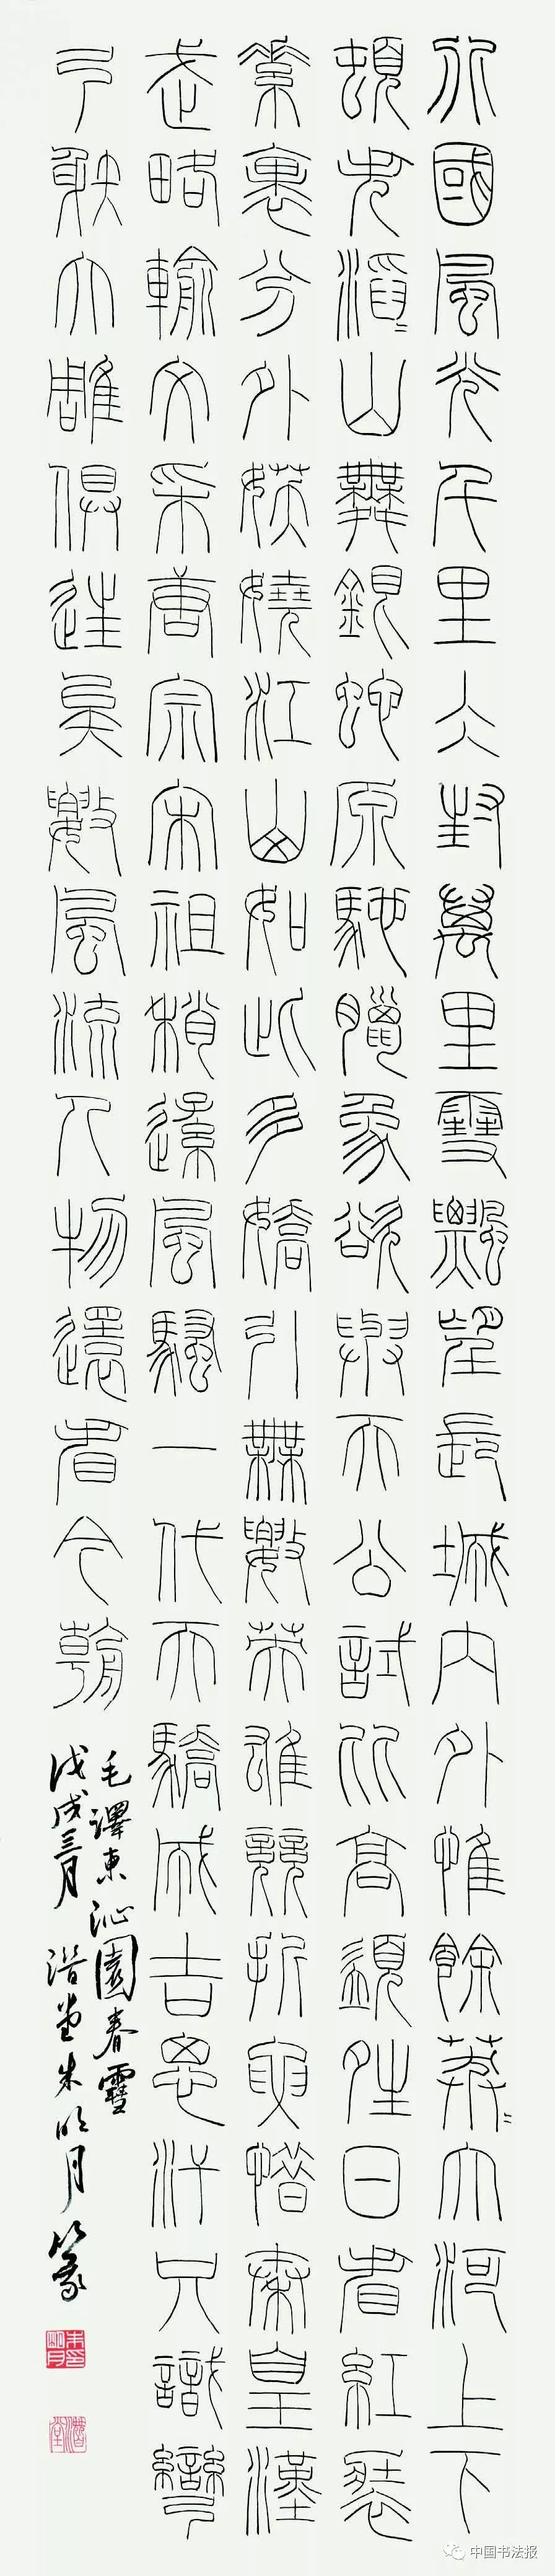 北國風光千里冰封萬里雪飄望長城內外惟餘莽〻大河上下
頓失滔〻山舞銀蛇原馳臘象欲與天公試比高須晴日看紅裝
素裹分外妖嬈江山如此多嬌引無數英雄競折腰惜秦皇漢
武略輸文采唐宗宋祖稍遜風騷一代天驕成吉思汗只識彎
弓射大雕俱往矣數風流人物還看今朝
毛澤東沁園春雪
戊戌三月 潛堂朱明月篆
朱明月印
潛堂
中国书法报